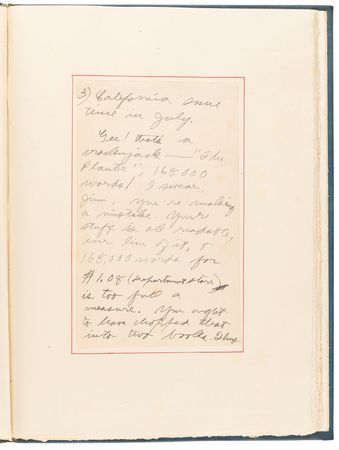 3) California some
time in July.
Gee! that's a
crackerjack — "The
Planter", 168,000
words! I swear,
Jim, you're making
a mistake. Your
stuff is all readable,
ever line of it, &
168,000 words for
$1.08 (department store)
is too full a
measure. You ought
to have chopped that
into two books. They